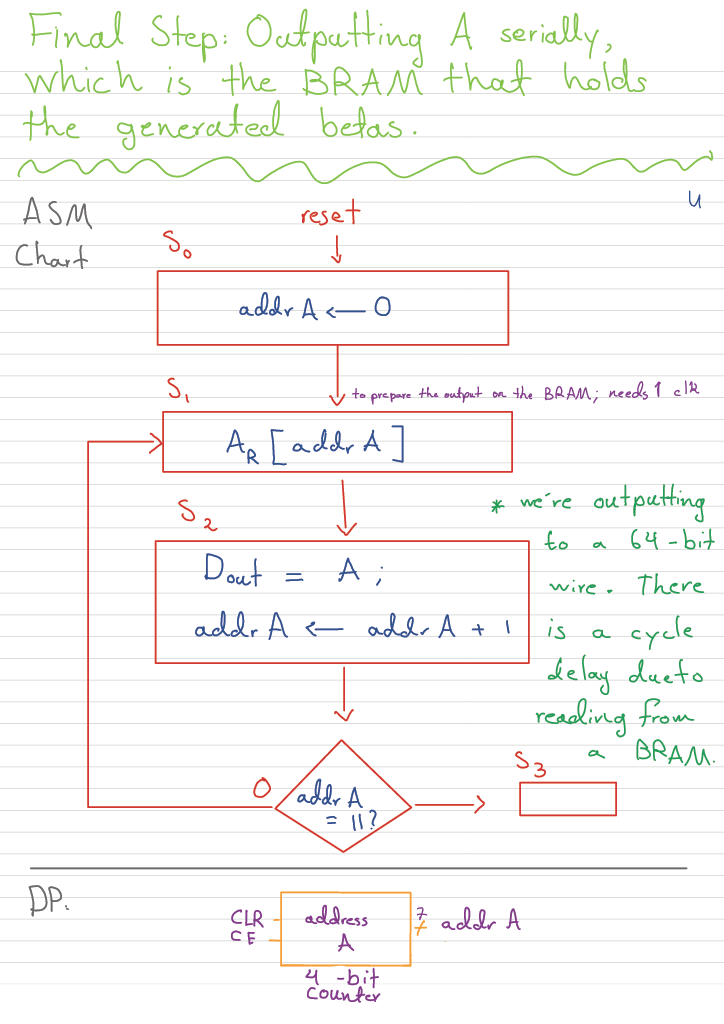 Final Step: Outputting A serially,
which is the BRAM that holds
the generated betas.
ASM
Chart
reset
4
S0
addr A ← 0
to prepare the output on the BRAM; needs 1 clk
S1
AR [addr A]
S2
Dout = A ;
addr A ← addr A + 1
* we're outputting
to a 64-bit
wire. There
is a cycle
delay dueto
reading from
a BRAM.
S3
0
addr A
= 11?
DP.
CLR
CE
address
A
7
addr A
4-bit
Counter